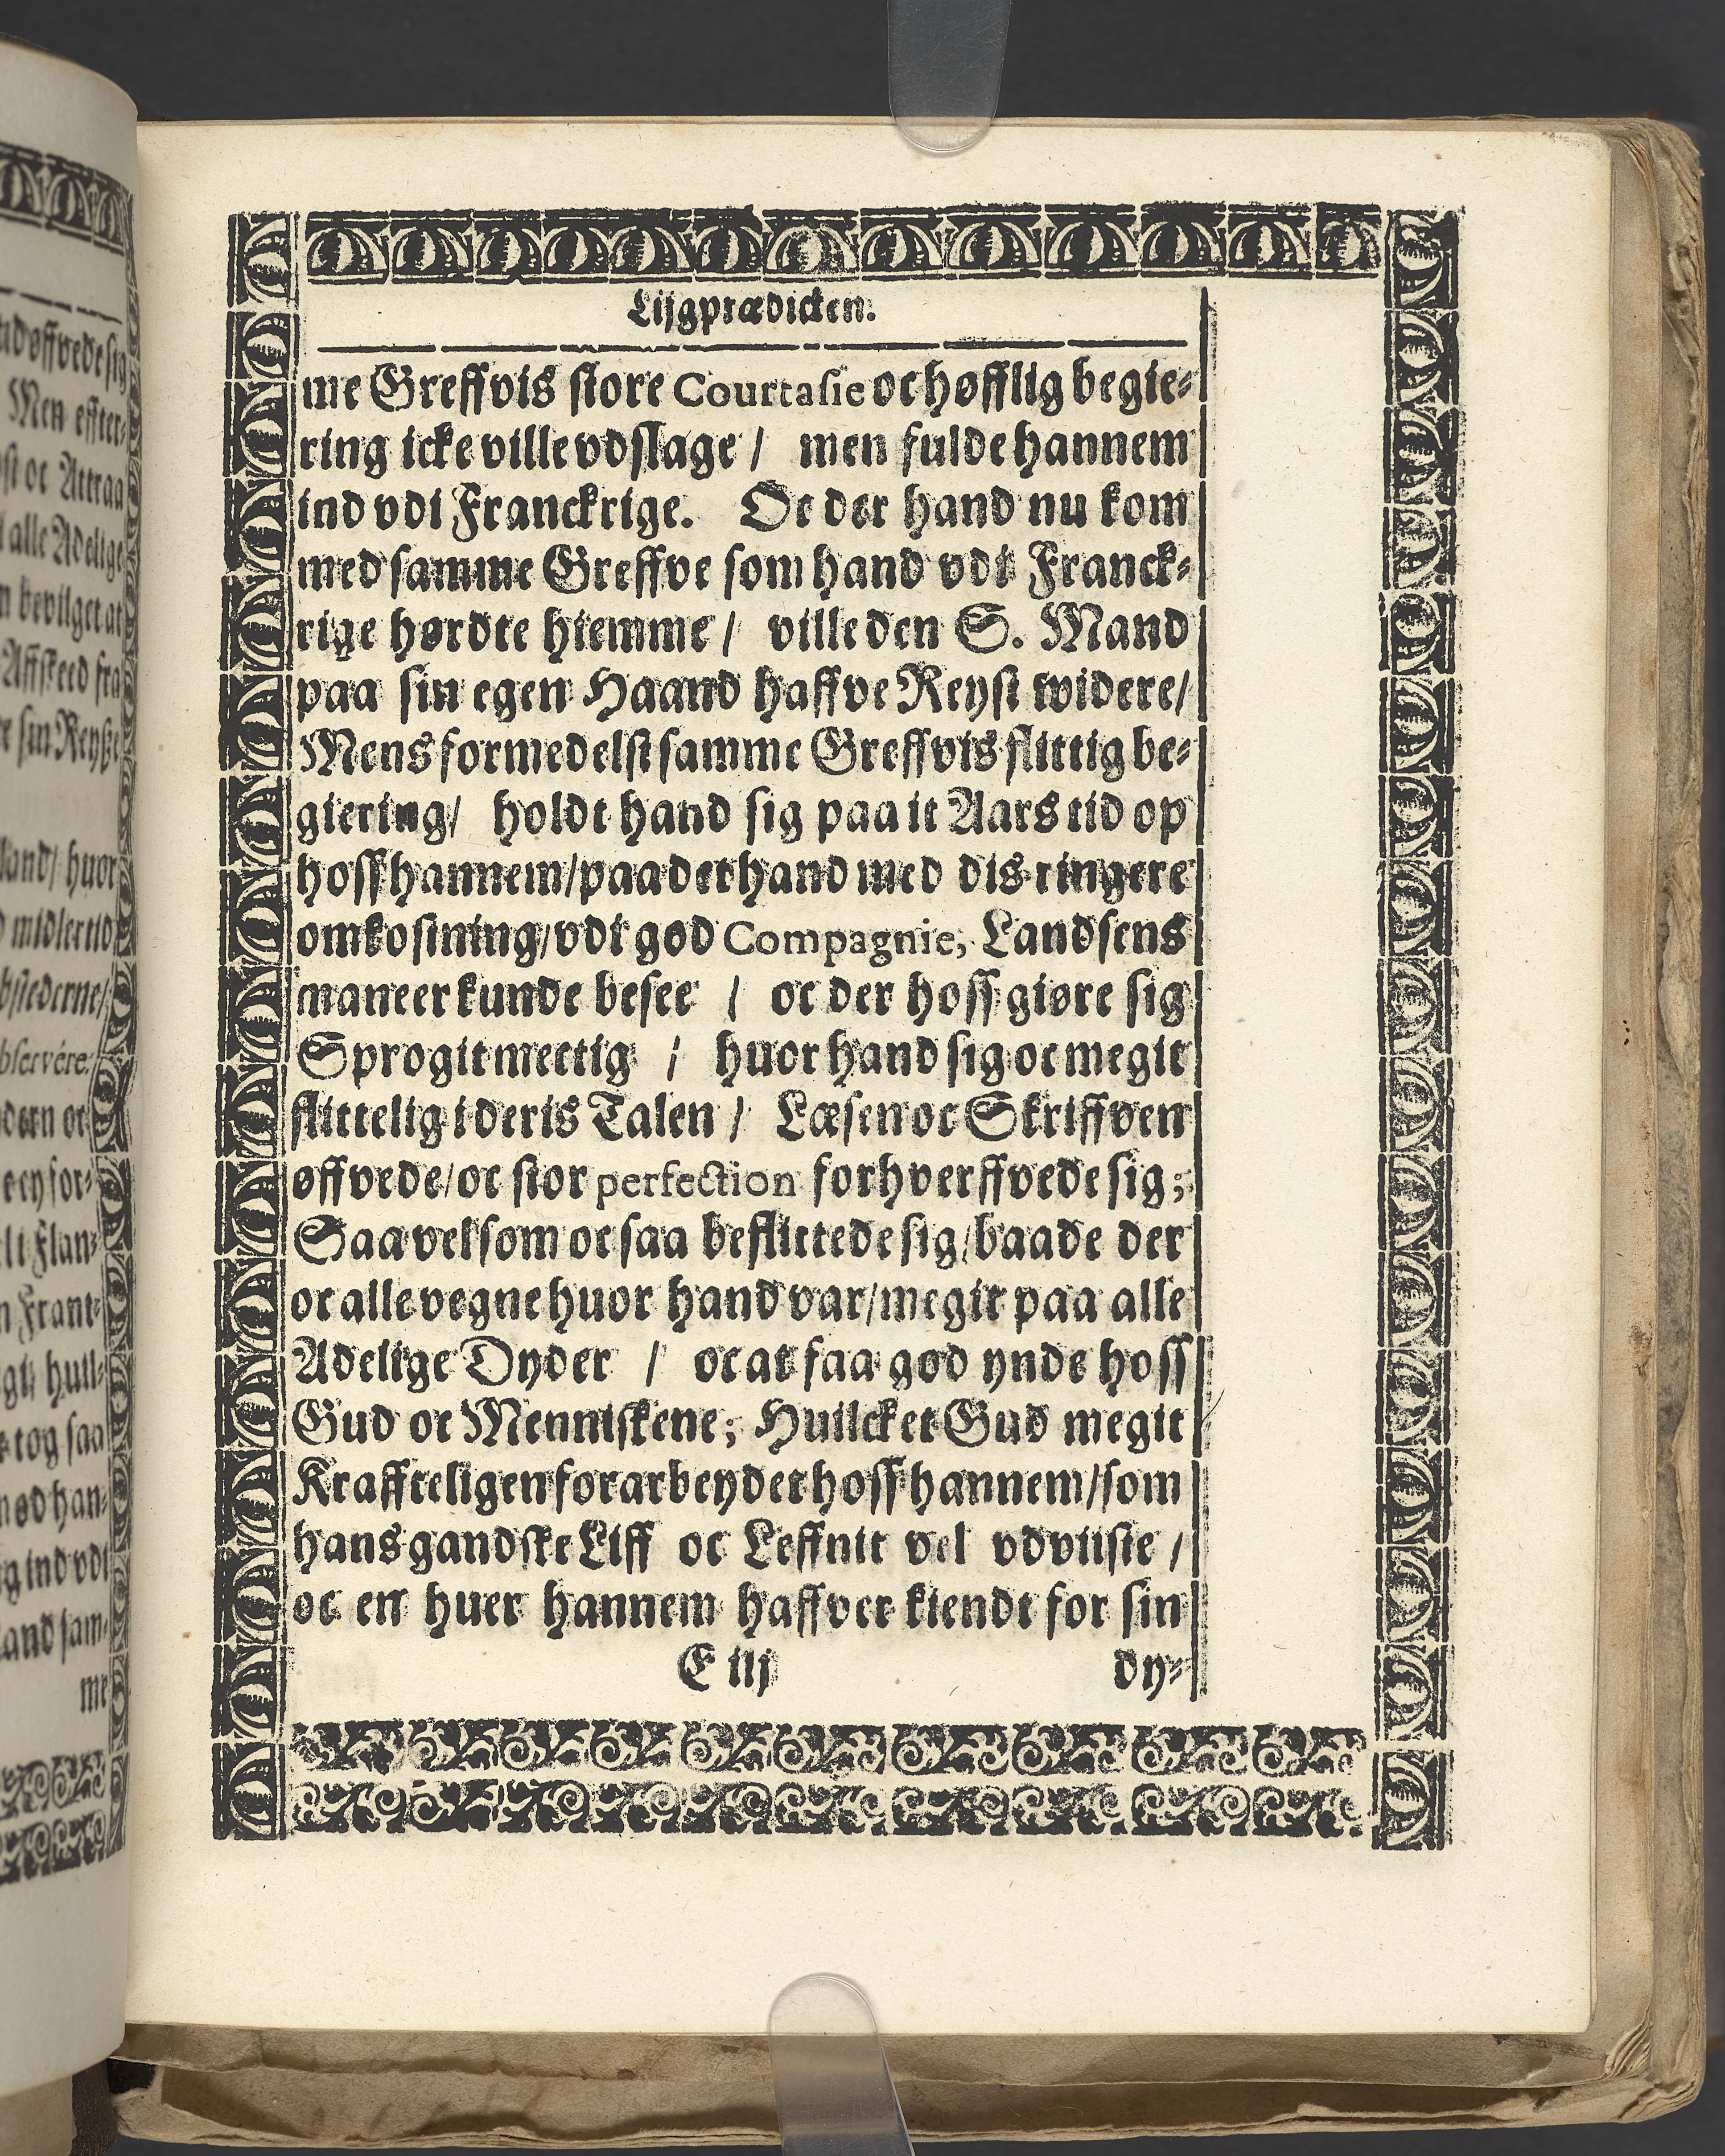 Lijgprædicken.
me Greffvis store Courtasie oc høfflig begie-
ring icke ville vdslage / men fulde hannem
ind vdi Franckrige. Oc der hand nu kom
med samme Greffve som hand vdi Franck-
rige hørdte hiemme / ville den S. Mand
paa sin egen Haand haffve Reyst widere /
Mens formedelst samme Greffvis flittig be-
giering / holdt hand sig paa it Aars tid op
hoss hannem / paa det hand med dis ringere
omkostning / vdi god Compagnie, Landsens
maneer kunde besee / oc der hoss giøre sig
Sprogit mectig / huor hand sig oc megit
flittelig i deris Talen / Læsen oc Skriffven
øffvede / oc stor perfection forhverffvede sig;
Saa vel som oc saa beflittede sig / baade der
oc alle vegne huor hand var / megit paa alle
Adelige Dyder / oc at faa god ynde hoss
Gud oc Menniskene; Huilcket Gud megit
Kraffteligen forarbeydet hoss hannem / som
hans gandske Liff oc Leffnit vel vdviiste /
oc en huer hannem haffver kiendt for sin
E iij dy-
vdøffvede sig
Men effter-
oc Attraa
alle Adelige
bevilget at
Affskeed fra
sin Reyße
land / huor
midlertid
observére.
ey for-
Flan-
Frant-
huil-
tog saa
han-
ind vdi
sam-
me